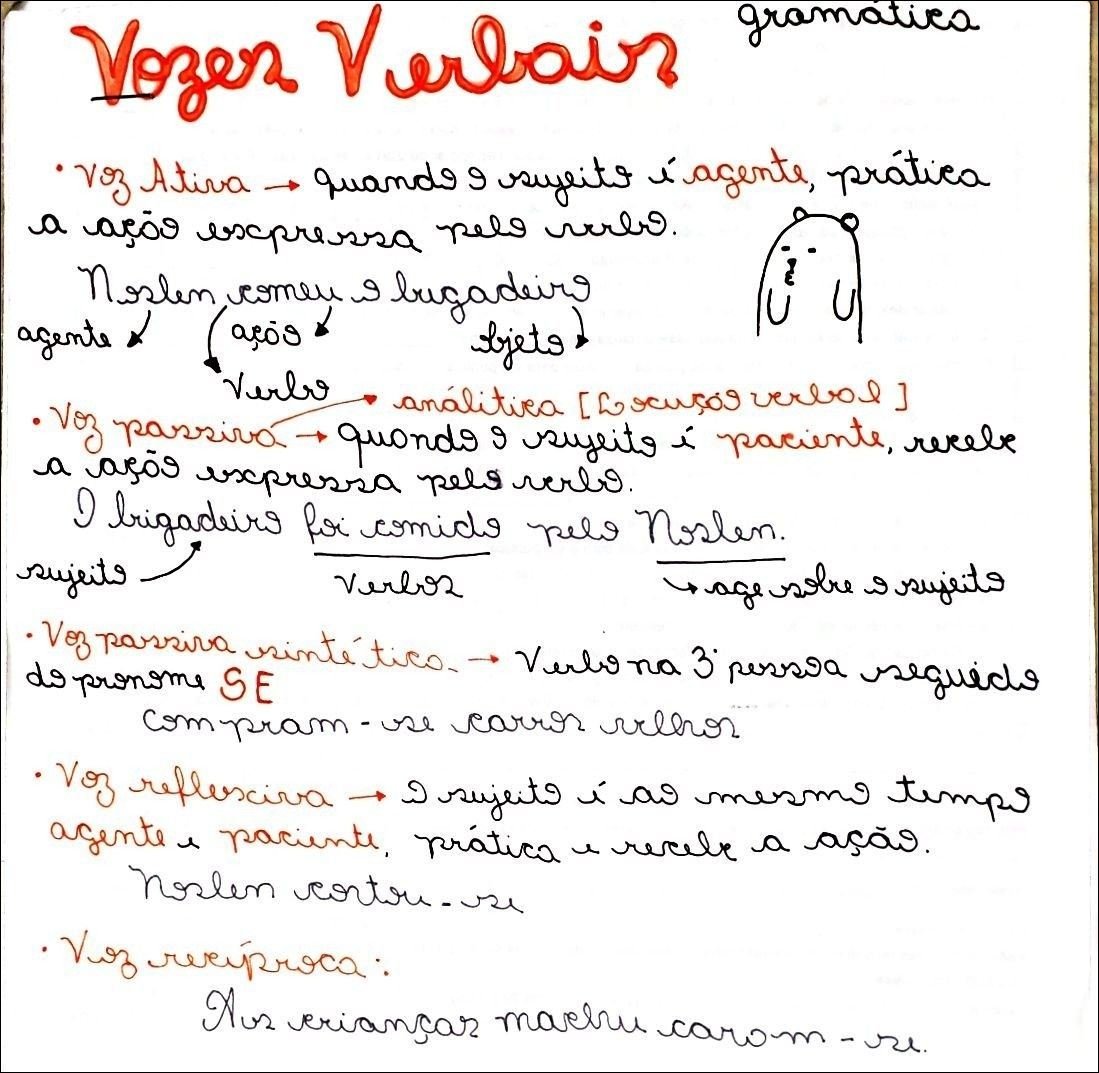 gramática
Vozes Verbais
• Voz Ativa → quando o sujeito é agente, prática
a ação expressa pelo verbo.
Noslen comeu o brigadeiro
agente ação objeto
Verbo
análitica [Locução verbal]
• Voz passiva → quando o sujeito é paciente, recebe
a ação expressa pelo verbo.
O brigadeiro foi comido pelo Noslen.
sujeito verbos → age sobre o sujeito
• Voz passiva sintético. → Verbo na 3ª pessoa seguido
do pronome SE
Compram-se carros velhos
• Voz reflexiva → o sujeito é ao mesmo tempo
agente e paciente, prática e recebe a ação.
Noslen cortou-se
• Voz recíproca:
As crianças machucarom-se.